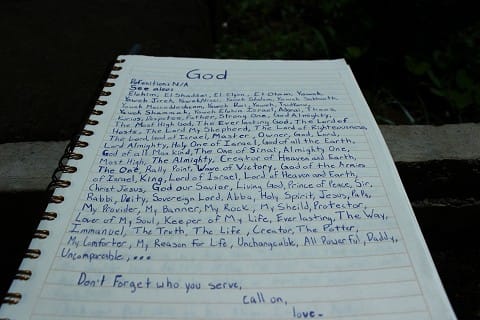 God
Definition: N/A
See also:
Elohim, El Shaddai, El Elyon, El Olam, Yaweh,
Yaweh Jireh, Yaweh Nissi, Yaweh Shalom, Yaweh Sabbaoth,
Yaweh Maccaddeshcem, Yaweh Roi, Yaweh
Yaweh Shammah, Yaweh Elohim Israel, Adonai, Theos,
Kurios, Despotes, Father, Strong One, God Almighty,
The Most High God, The Everlasting God, The Lord of
Hosts, The Lord My Shepherd, The Lord of Righteousness,
The Lord, God of Israel, Master, Owner, God, Lord,
Lord Almighty, Holy One of Israel, God of all the Earth,
God of all Mankind, The One of Sinai, Almighty One,
Most High, The Almighty, Creator of Heaven and Earth,
The One, Rally Point, Wave of Victory, God of the Armies
of Israel, King, Lord of Israel, Lord of Heaven and Earth,
Christ Jesus, God our Savior, Living God, Prince of Peace, Sir,
Rabbi, Deity, Sovereign Lord, Abba, Holy Spirit, Jesus, PaPa,
My Provider, My Banner, My Rock, My Sheild, Protector,
Lover of My Soul, Keeper of My Life, Everlasting, The Way,
Immanuel, The Truth, The Life, Creator, The Potter,
My Comforter, My Reason for Life, Unchangeable, All Powerful, Daddy,
Uncomparable, ...
Don't Forget who you serve,
call on,
love.